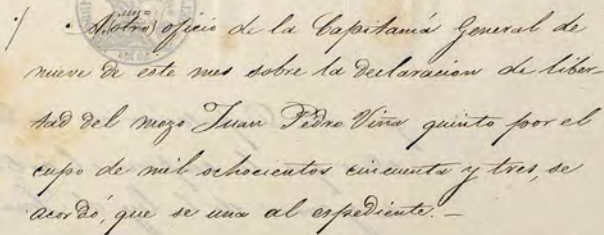 ·/ · A (otro) oficio de la Capitanía General de
nueve de este mes sobre la declaracion de liber-
tad del mozo Juan Pedro Viña quinto por el
cupo de mil ochocientos cincuenta y tres, se
acordó, que se una al espediente. –